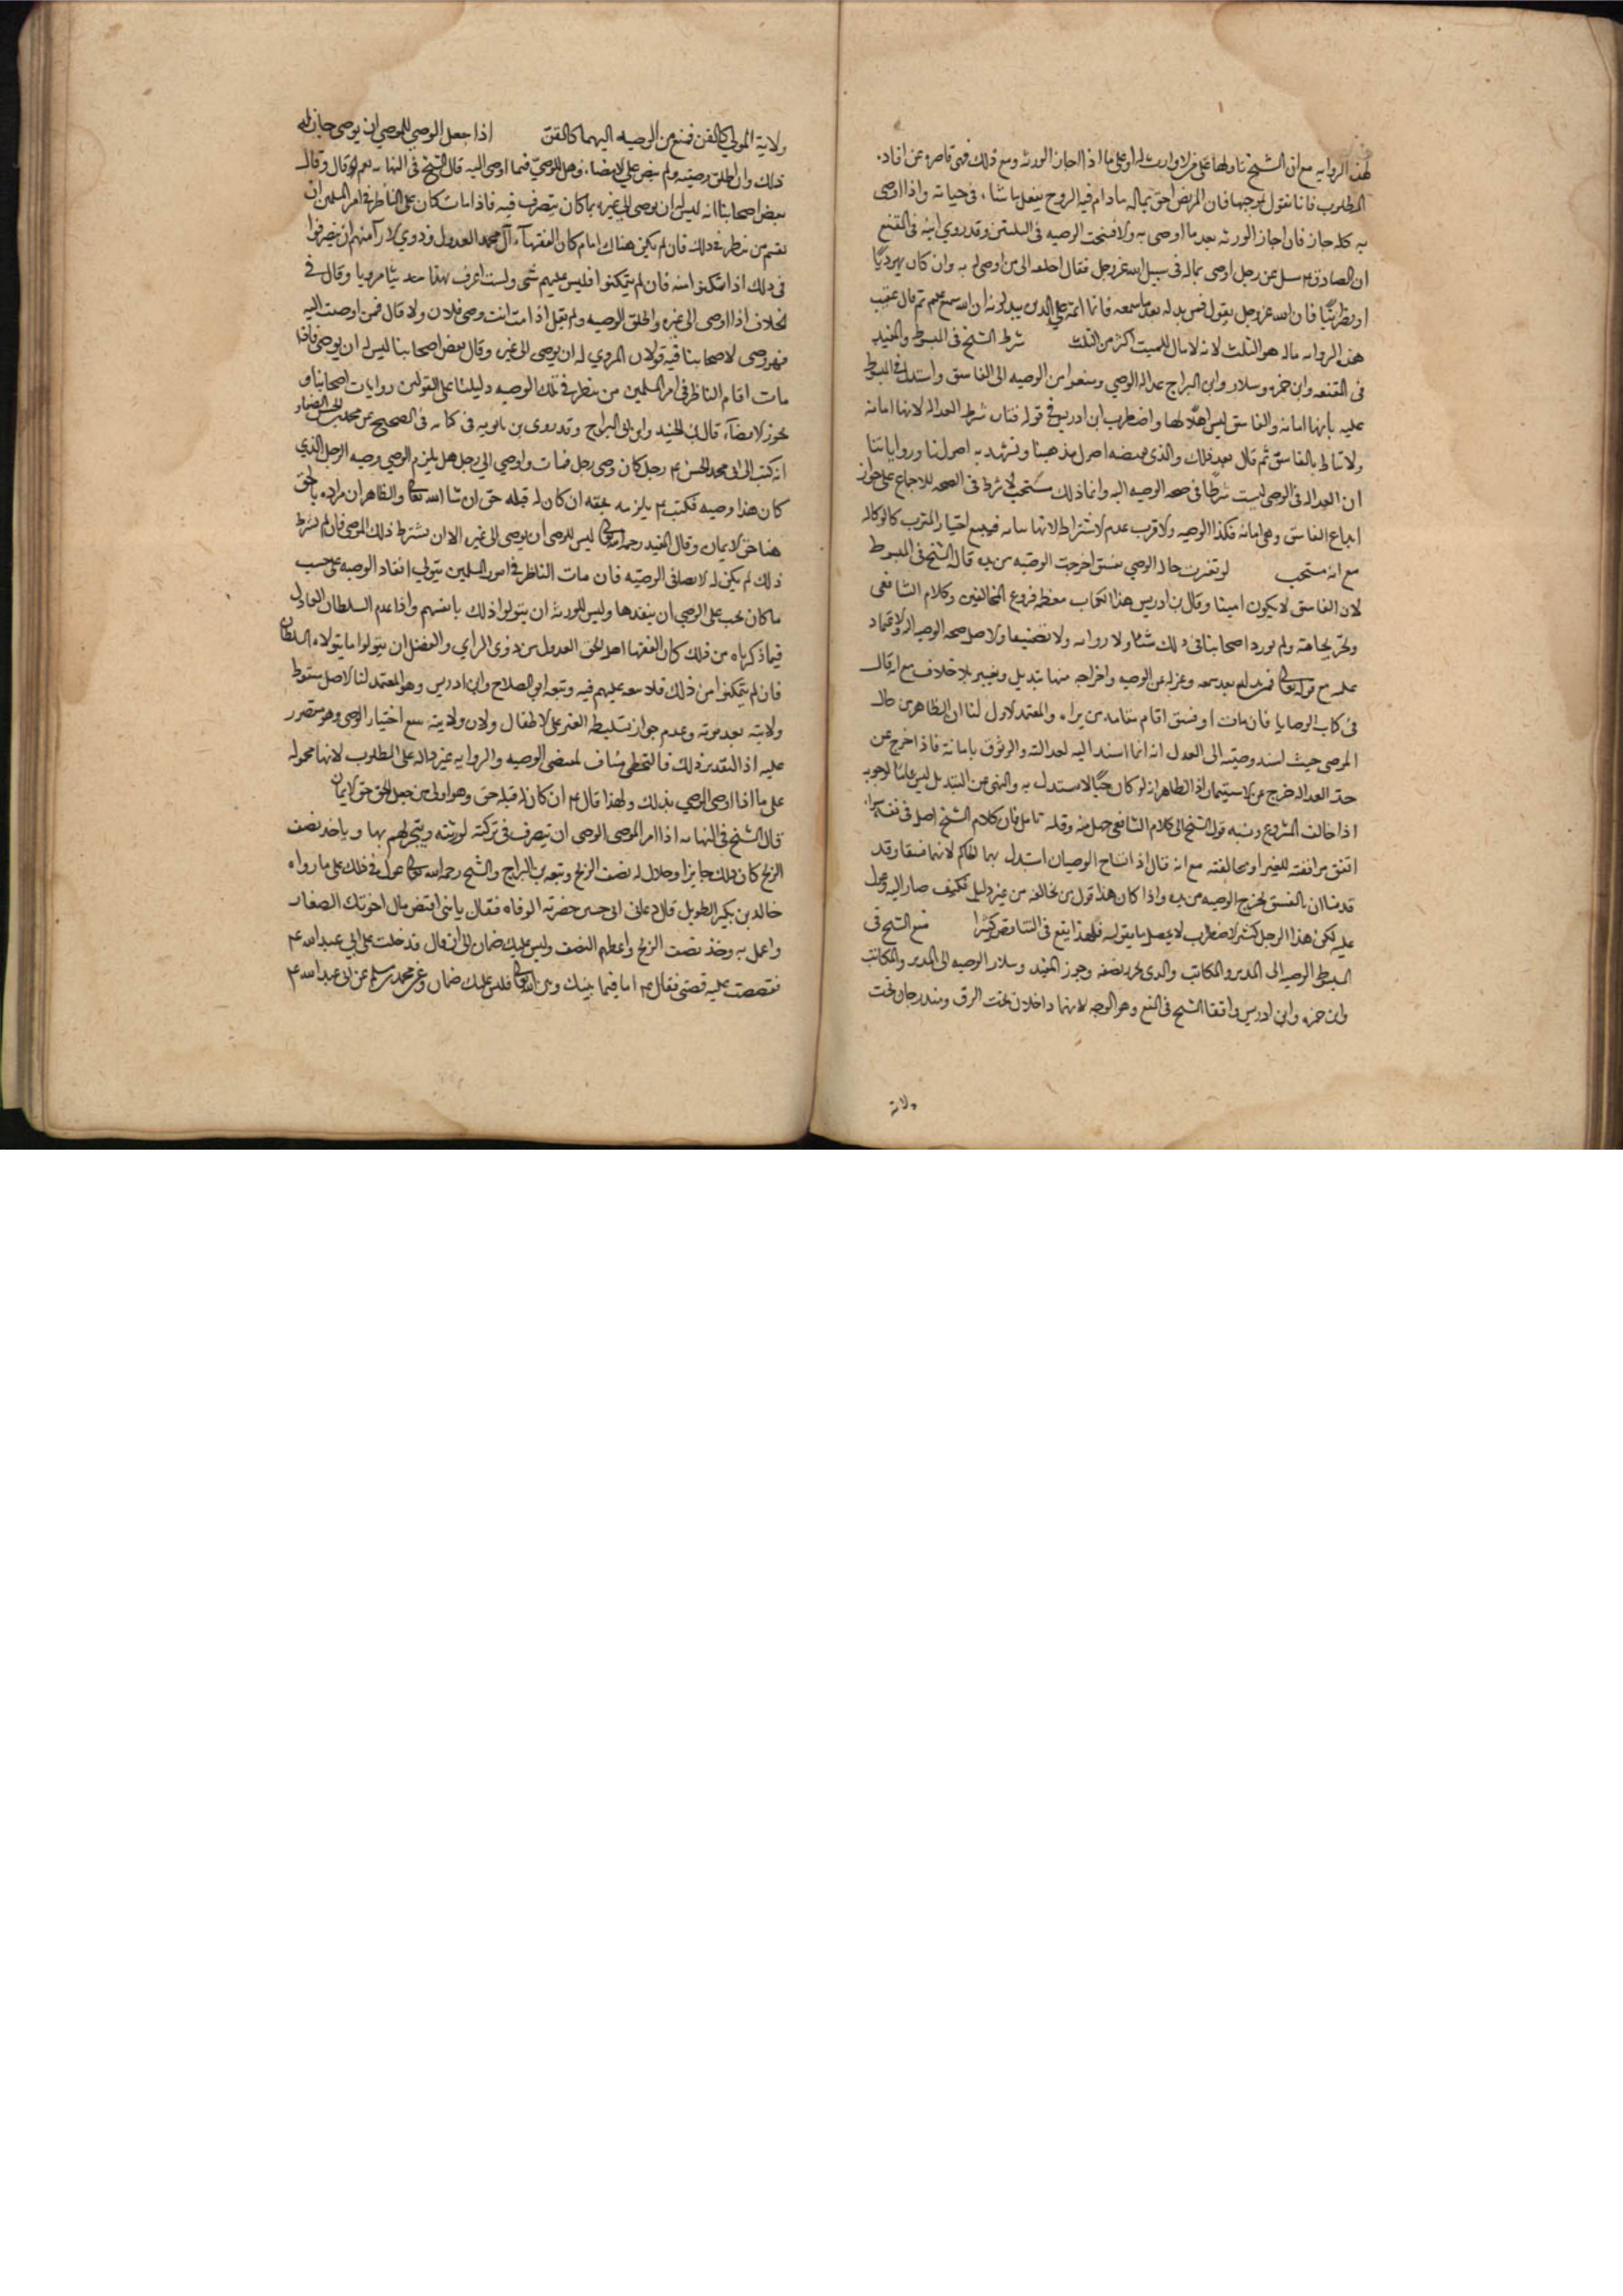 لهذه الروايه مع ان الشيخ تاولها على من لا وارث له او على ما اذا اجاز الورثه ومع ذلك فهى قاصره عن افاده
المطلوب فانا نقول بموجبها فان المريض احق بماله مادام فيه الروح يفعل ما شاء فى حياته واذا اوصى
به كله جاز فان اجاز الورثه بعد ما اوصى به والا فسخت الوصيه فى الثلثين وقد روى ابنه فى المقنع
ان الصادق ع سئل عن رجل اوصى بماله فى سبيل الله عز وجل فقال اجعله الى من اوصى له به وان كان يهوديا
او نصرانيا فان الله عز وجل يقول فمن بدله بعد ما سمعه فانما اثمه على الذين يبدلونه ان الله سميع عليم ثم قال عقيب
هذه الروايه ماله هو الثلث لانه لا مال للميت اكثر من الثلث شرط الشيخ فى المبسوط والمفيد
فى المقنعه وابن حمزه وسلار وابن البراج عداله الوصي ومنعوا من الوصيه الى الفاسق واستدل فى المبسوط
عليه بأنها امانه والفاسق ليس اهلا لها واضطرب ابن ادريس فى قوله فتاره شرط العداله لانها امانه
ولا تناط بالفاسق ثم قال بعد ذلك والذى يقتضيه اصول مذهبنا وتشهد به اصولنا ورواياتنا
ان العداله فى الوصي ليست شرطا فى صحه الوصيه اليه وانما ذلك مستحب لا شرط فى الصحه للاجماع على جواز
ايداع الفاسق وهى امانه فكذا الوصيه والاقرب عدم الاشتراط لانها نيابه فيتبع اختيار المنوب كالوكاله
مع انه مستحب لو تغيرت حال الوصي بفسق اخرجت الوصيه من يده قاله الشيخ فى المبسوط
لان الفاسق لا يكون امينا وقال ابن ادريس هذا الكتاب معظمه فروع المخالفين وكلام الشافعى
وتخريجاته ولم يورد اصحابنا فى ذلك شيئا ولا روايه ولا تصنيفا والاصل صحه الوصيه اليه والاعتماد
عليه مع قوله تعالى فمن بدله بعد ما سمعه وعزله عن الوصيه واخراجه منها تبديل وتغيير بلا خلاف مع انه قال
فى كتاب الوصايا فان مات او فسق اقام مقامه من يراه والمعتمد الاول لنا ان الظاهر من حال
الموصى حيث اسند وصيته الى العدل انه انما اسند اليه لعدالته والوثوق بامانته فاذا خرج عن
حد العداله خرج عن الاستيمان اذ الظاهر انه لو كان حيا لاستبدل به والنهى عن التبديل ليس عاما لوجوبه
اذا خالف المشروع ونسبه قول الشيخ الى كلام الشافعى جهل منه وقله تامل فان كلام الشيخ اصل فى نفسه سواء
اتفق موافقته للغير او مخالفته مع انه قال اذا تشاح الوصيان استبدل بهما الحاكم لانهما فسقا وقد
قدمنا ان بالفسق تخرج الوصيه من يده واذا كان هذا قول من يخالفه من غير دليل فكيف صار اليه وعول
عليه لكن هذا الرجل كثير الاضطراب لا يحصل ما يقوله فلهذا يقع فى التناقض كثيرا منع الشيخ فى
المبسوط الوصيه الى المدبر والمكاتب والذى تحرر بعضه وجوز المفيد وسلار الوصيه الى المدبر والمكاتب
وابن حمزه وابن ادريس وافقا الشيخ فى المنع وهو الوجه لانهما داخلان تحت الرق ومندرجان تحت
ولاية
ولاية المولى كالقن فمنع من الوصيه اليهما كالقن اذا جعل الوصي للموصى ان يوصى جاز له
ذلك وان اطلق وصيته ولم ينص على الامضاء فهل للوصي فيما اوصى اليه قال الشيخ فى النهايه نعم فانه قال وقال
بعض اصحابنا انه ليس له ان يوصى الى غيره بما كان يتصرف فيه فاذا مات كان على الناظر فى امر المسلمين ان
يقيم من ينظر فى ذلك فان لم يكن هناك امام كان لفقهاء آل محمد العدول وذوي الاراء منهم ان يتصرفوا
فى ذلك اذا تمكنوا منه فان لم يتمكنوا فليس عليهم شئ ولست اعرف بهذا حديثا مرويا وقال فى
الخلاف اذا اوصى الى غيره واطلق الوصيه ولم يقل اذا مت انت وصى فلان ولا قال فمن اوصيت اليه
فهو وصى لاصحابنا فيه قولان المروي له ان يوصى الى غيره وقال بعض اصحابنا ليس له ان يوصى فاذا
مات اقام الناظر فى امر المسلمين من ينظر فى تلك الوصيه دليلنا على القولين روايات اصحابنا و
بجواز الامضاء قال ابن الجنيد وابن البراج وقد روى بن بابويه فى كتابه فى الصحيح عن محمد بن الحسن الصفار
انه كتب الى ابى محمد الحسن ع رجل كان وصى رجل فمات واوصى الى رجل هل يلزم الوصي وصيه الرجل الذي
كان هذا وصيه فكتب ع يلزمه بحقه ان كان له قبله حق ان شا الله تعالى والظاهر ان مراده بالحق
هنا حق الايمان وقال المفيد رحمه الله تعالى ليس للوصى ان يوصى الى غيره الا ان يشترط ذلك الموصى فان لم يشترط
ذلك لم يكن له الايصا فى الوصيه فان مات الناظر فى امور المسلمين يتولى انفاذ الوصيه على حسب
ما كان يجب على الوصي ان ينفذها وليس للورثه ان يتولوا ذلك بانفسهم واذا عدم السلطان العادل
فيما ذكرناه من ذلك كان لفقها اهل الحق العدول من ذوى الراي والفضل ان يتولوا ما يتولاه السلطان
فان لم يتمكنوا من ذلك فلا تبعه عليهم فيه وتبعه ابو الصلاح وابن ادريس وهو المعتمد لنا الاصل سقوط
ولايته بعد موته وعدم جواز تسليط الغير على الاطفال ولان ولايته تتبع اختيار الموصى وهو مقصور
عليه اذ التقدير ذلك فالتخطى مناف لمقتضى الوصيه والروايه غير داله على المطلوب لانها محموله
على ما اذا اوصى الوصي بذلك ولهذا قال ع ان كان له قبله حق وهو اولى من جعل الحق حق الايمان
قال الشيخ فى النهايه اذا امر الموصى الوصى ان يتصرف فى تركته لورثته ويتجر لهم بها وياخذ نصف
الربح كان ذلك جايزا وحلال له نصف الربح وتبعه بن البراج والشيخ رحمه الله تعالى عول فى ذلك على ما رواه
خالد بن بكير الطويل قال دعانى ابى حين حضرته الوفاه فقال يا بنى اقبض مال اخوتك الصغار
واعمل به وخذ نصف الربح واعطهم النصف وليس عليك ضمان الى ان قال فدخلت على ابى عبد الله ع
فقصصت عليه قصتى فقال ع اما فيما بينك وبين الله تعالى فليس عليك ضمان وعن محمد بن مسلم عن ابى عبد الله ع